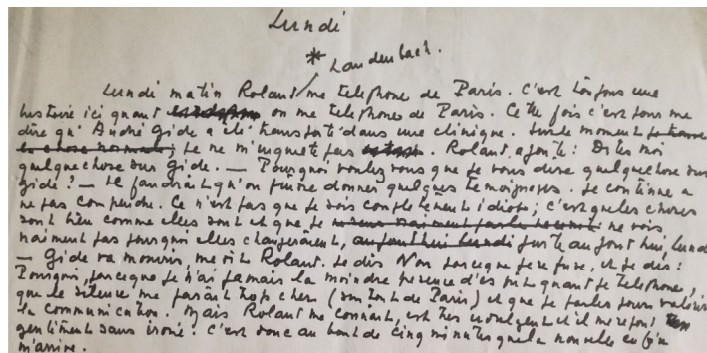 Lundi
* Laudenbach.
Lundi matin Roland me telephone de Paris. C'est toujours une
histoire ici quant on me telephones de Paris. Cette fois c'est pour me
dire qu'André Gide a été transporté dans une clinique. Sur le moment je trouve
la chose normale; je ne m'inquete pas. Roland ajoute: Dites moi
quelque chose sur Gide. — Pourquoi voulez vous que je vous dise quelque chose sur
Gide? — Il faudrait qu'on puisse donner quelques temoignages. Je continue a
ne pas comprendre. Ce n'est pas que je sois completement idiot; c'est que les choses
sont bien comme elles sont et que je ne vois
vraiment pas pourquoi elles changeraient, aujourd'hui lundi juste aujourd'hui, lundi
— Gide va mourir, me dit Roland. Je dis Non parce que je refuse, et je dis:
Pourquoi, parce que je n'ai jamais la moindre presence d'esprit quant je telephone,
que le silence me parait trop cher (surtout de Paris) et que je parles pour valoriser
la communication. Mais Roland me connait, est tres indulgent et il me repond
gentiment sans ironie: c'est donc au bout de cinq minutes que la nouvelle enfin
m'arrive.